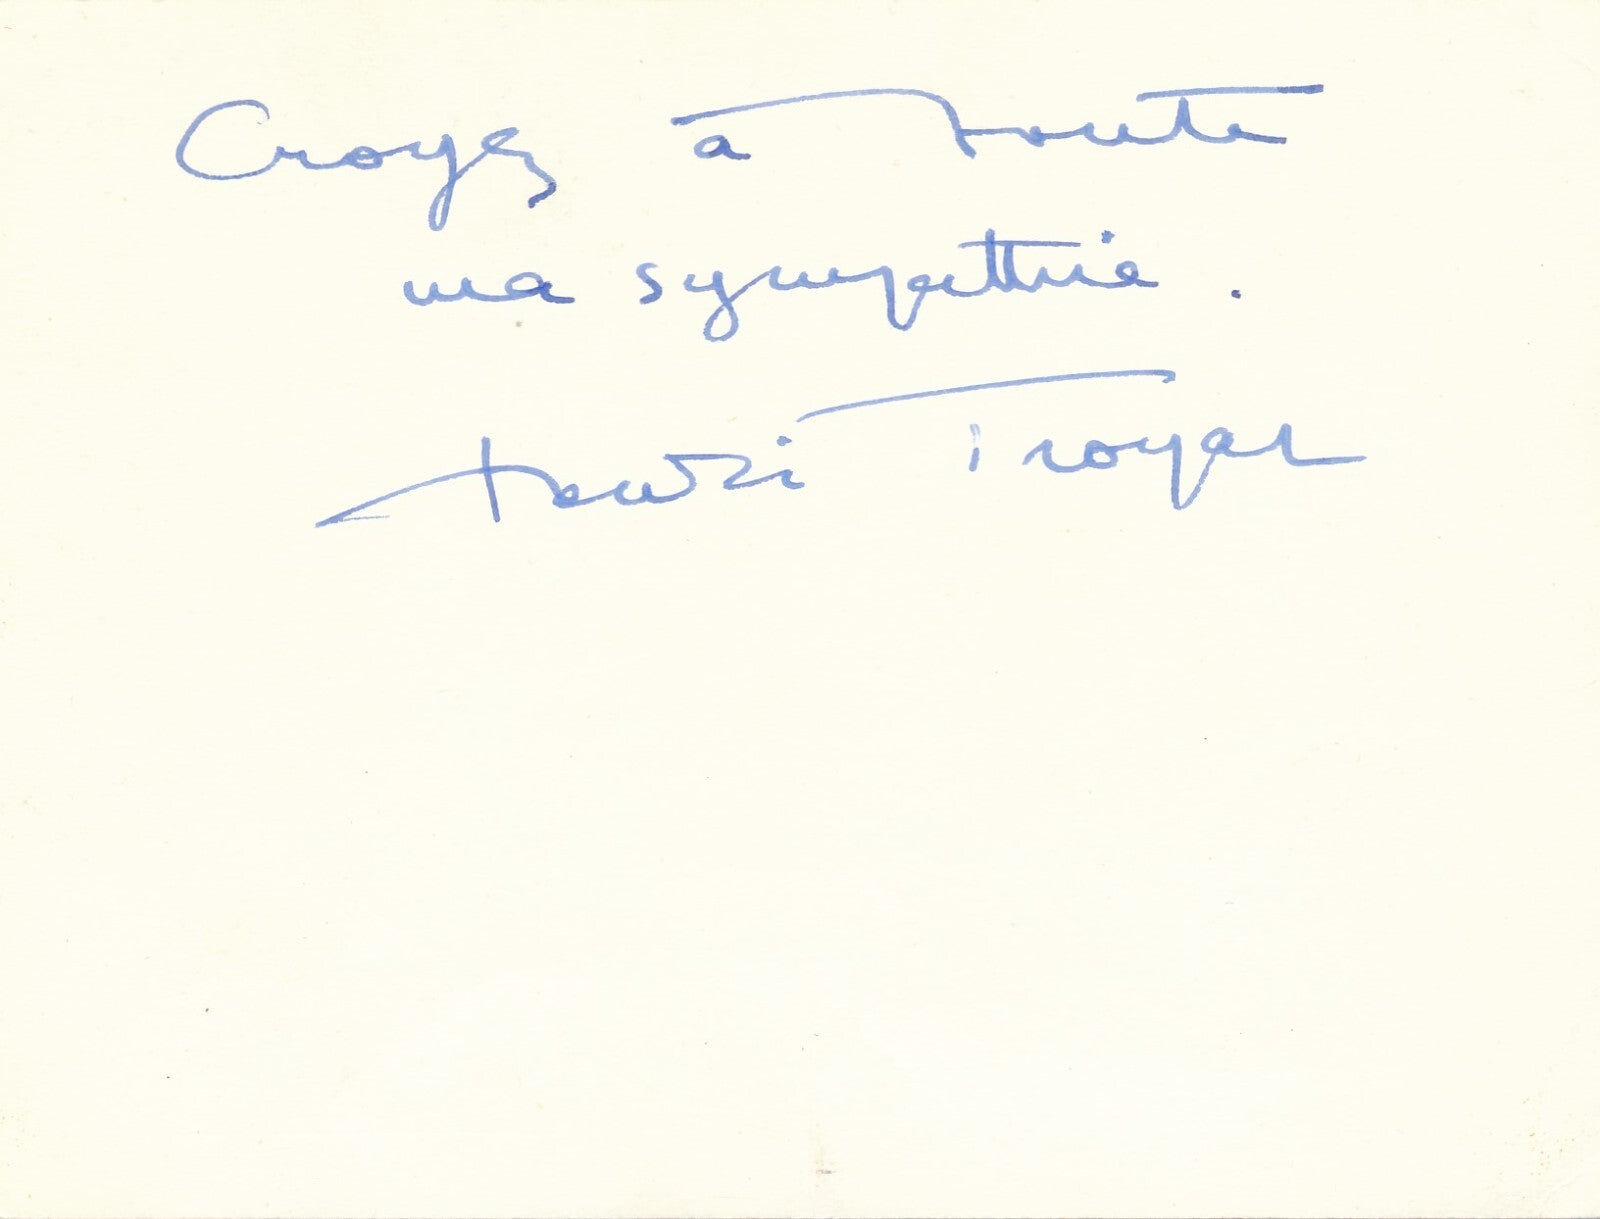 Croyez à toute
ma sympathie.
Henri Troyat